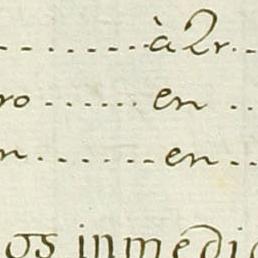 ........ à 2r..
ro ....... en ..
n ........ en ..
os inmedia